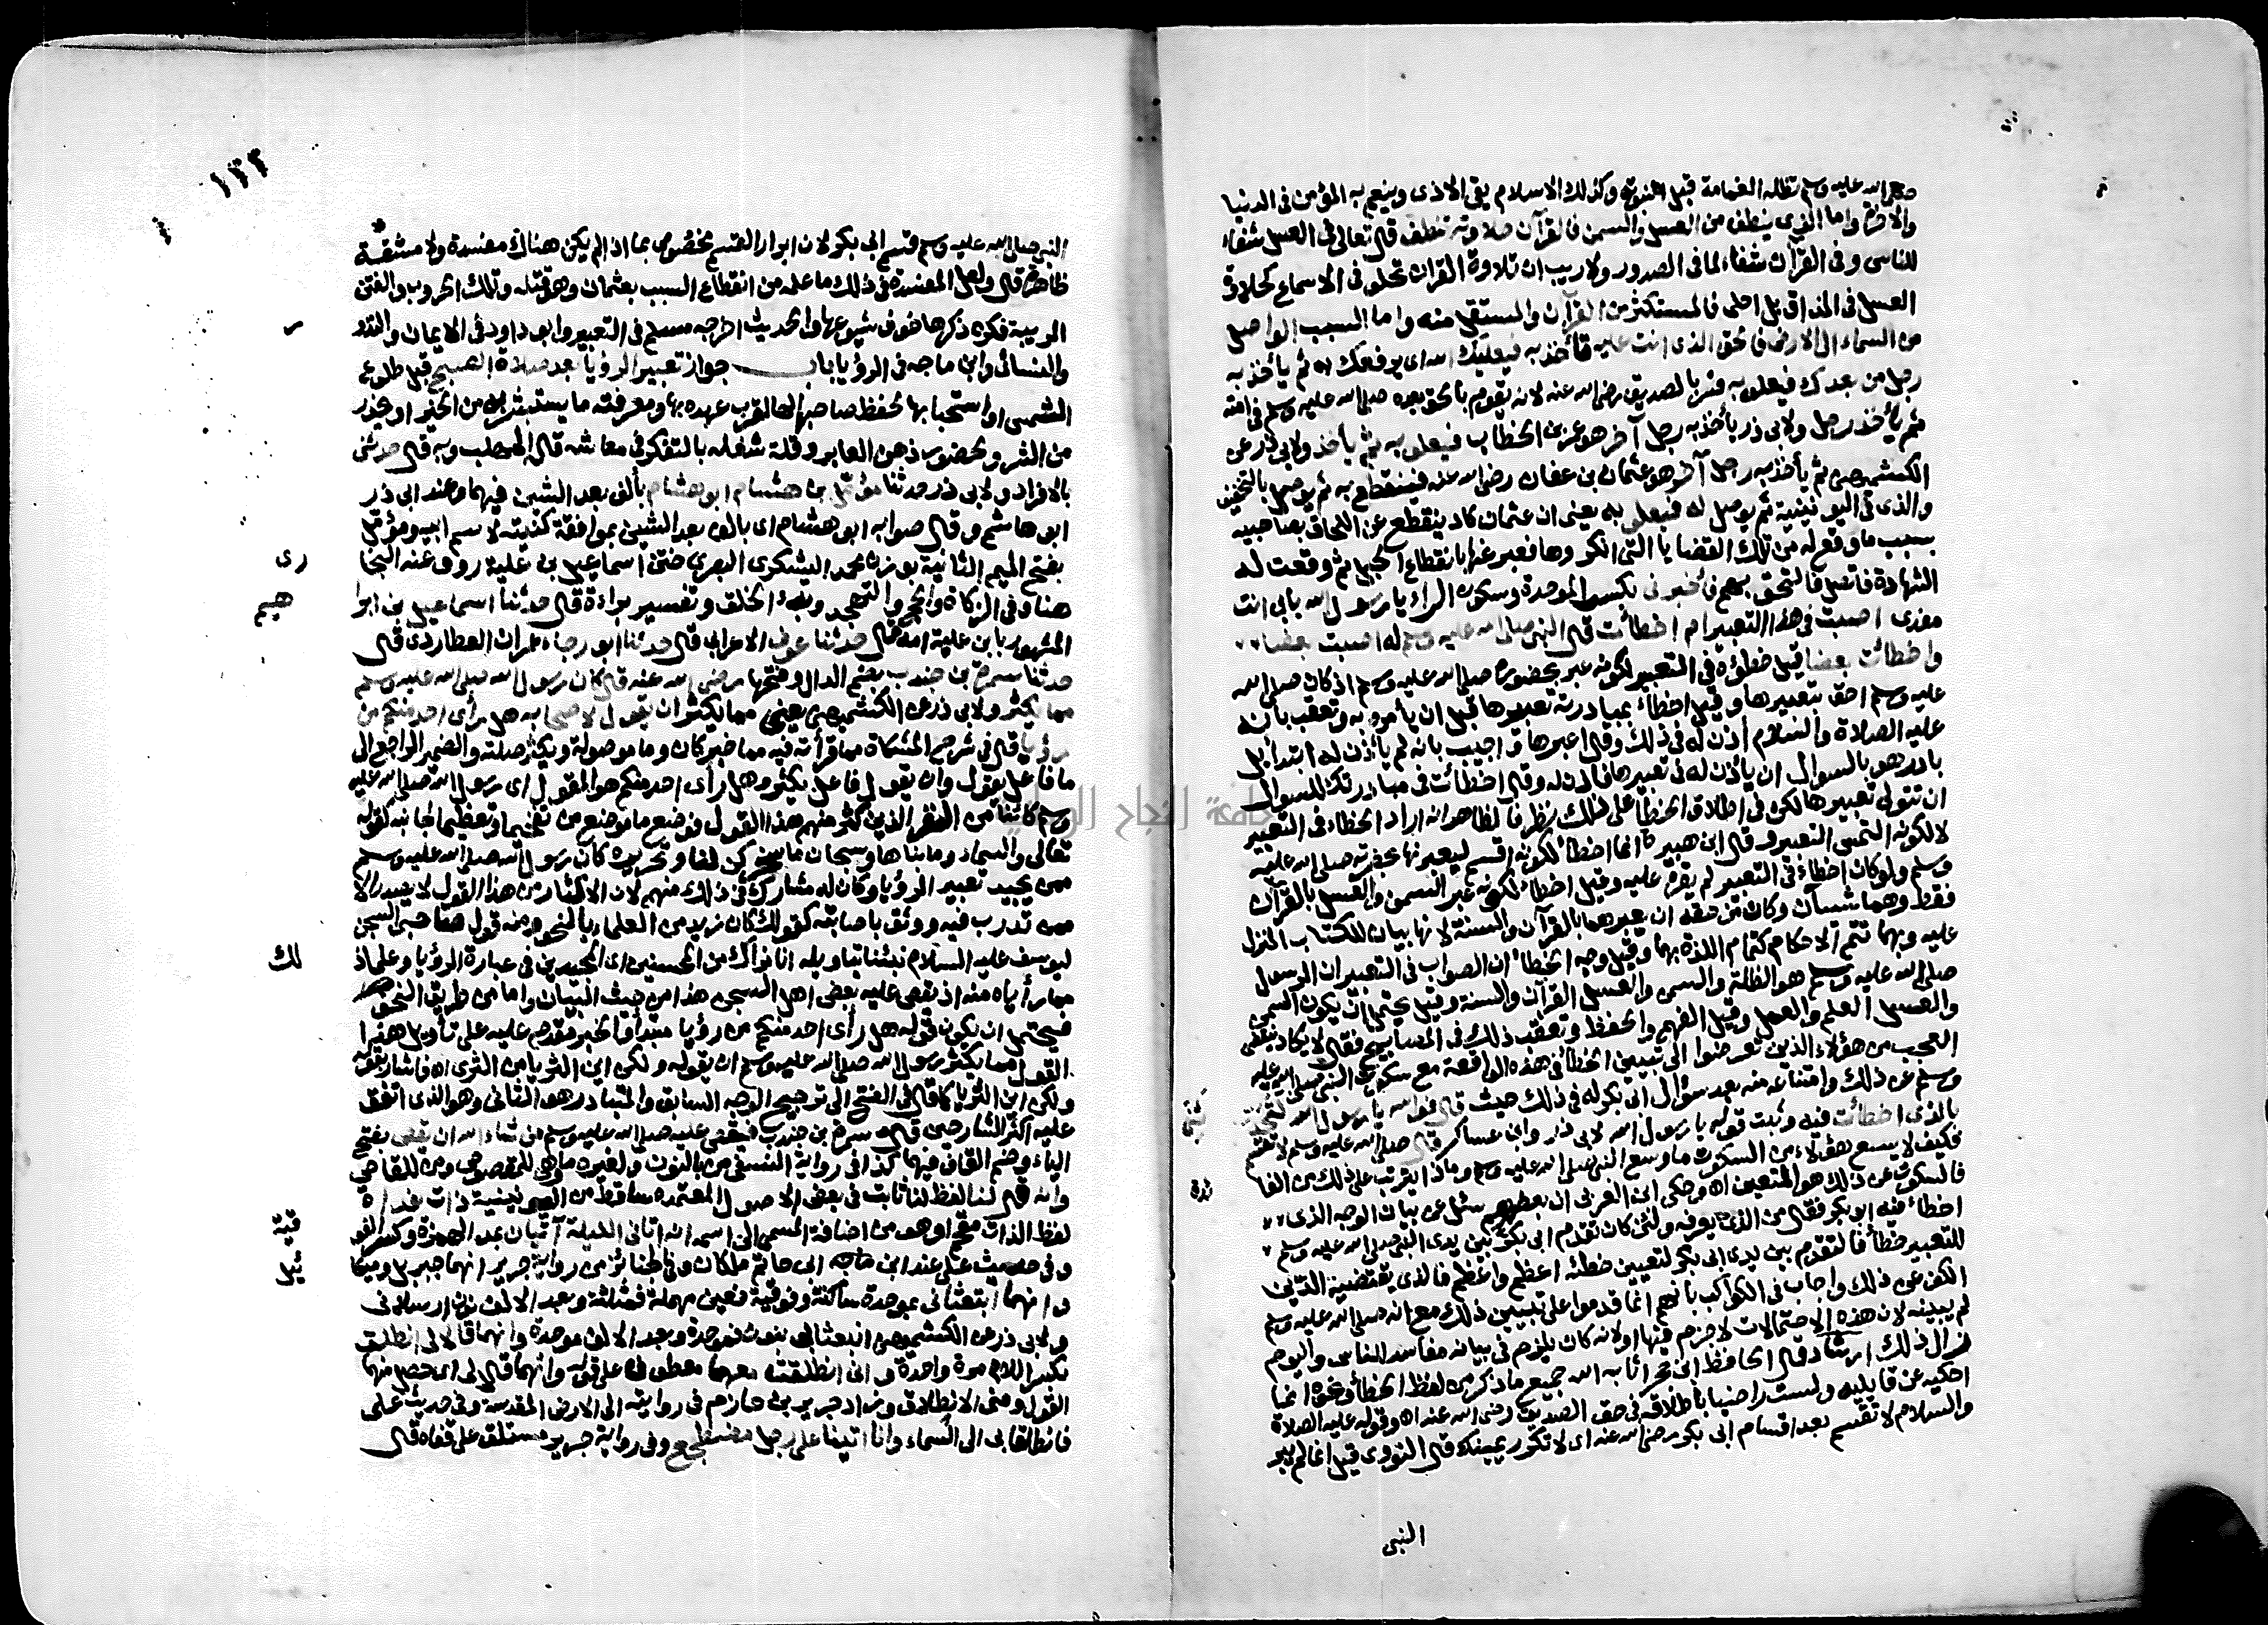 صلى الله عليه وسلم تظله الغمامة قبل النبوة وكذلك الاسلام يقي الاذى وينعم به المؤمن في الدنيا
والاخرة واما الذي ينطف من العسل والسمن فالقرآن حلاوته تنطف قال تعالى في العسل شفاء
للناس وفي القرآن شفاء لما في الصدور ولا ريب ان تلاوة القرآن تحلو في الاسماع كحلاوة
العسل في المذاق بل احلى فالمستكثر من القرآن والمستقل منه واما السبب الواصل
من السماء الى الارض فالحق الذي انت عليه تأخذ به فيعليك الله اى يرفعك الله ثم يأخذ به
رجل من بعدك فيعلو به فسر بالصديق رضي الله عنه لانه يقوم بالحق بعده صلى الله عليه وسلم في امته
ثم يأخذ رجل ولابي ذر يأخذ به رجل آخر هو عمر بن الخطاب فيعلو به ثم يأخذ ولابي ذر عن
الكشميهني ثم يأخذ به رجل آخر هو عثمان بن عفان رضي الله عنه فينقطع به ثم يوصل بالتخفيف
والذى في اليونينية ثم يوصل له فيعلو به يعني ان عثمان كاد ينقطع عن اللحاق بصاحبيه
بسبب ما وقع له من تلك القضايا التى انكروها فعبر عنها بانقطاع الحبل ثم وقعت له
الشهادة فاتصل فالتحق بهم فأخبرني بكسر الموحدة وسكون الراء يا رسول الله بأبي انت
مفدى اصبت في هذا التعبير ام اخطأت قال النبي صلى الله عليه وسلم له اصبت بعضا
واخطأت بعضا قيل خطؤه في التعبير لكونه عبر بحضوره صلى الله عليه وسلم اذ كان صلى الله
عليه وسلم احق بتعبيرها وقيل اخطأ بمبادرته تعبيرها قبل ان يأمره به وتعقب بأنه
عليه الصلاة والسلام أذن له في ذلك وقال اعبرها واجيب بانه لم يأذن له ابتداء بل
بادر هو بالسوال ان يأذن له في تعبيرها فأذن له وقال اخطأت في مبادرتك للسوال
ان تتولى تعبيرها لكن في اطلاق الخطأ على ذلك نظر فالظاهر انه اراد الخطأ في التعبير
لا لكونه التمس التعبير وقال ابن هبيرة انما اخطأ لكونه اقسم ليعبرنها بحضرته صلى الله عليه
وسلم ولو كان اخطأ في التعبير لم يقره عليه وقيل اخطأ لكونه عبر السمن والعسل بالقرآن
فقط وهما شيآن وكان من حقه ان يعبرهما بالقرآن والسنة لانها بيان للكتاب المنزل
عليه وبهما تتم الاحكام كتمام اللذة بهما وقيل وجه الخطأ ان الصواب في التعبير ان الرسول
صلى الله عليه وسلم هو الظلة والسمن والعسل القرآن والسنة وقيل يحتمل ان يكون السمن
والعسل العلم والعمل وقيل الفهم والحفظ وتعقب ذلك في المصابيح فقال لا يكاد ينقضى
العجب من هؤلاء الذين تعرضوا الى تبيين الخطأ في هذه الواقعة مع سكوت النبي صلى الله عليه
وسلم عن ذلك وامتناعه منه بعد سؤال ابي بكر له في ذلك حيث قال فوالله يا رسول الله لتحدثني
بالذى اخطأت فيه وثبت قوله يا رسول الله لابي ذر وابن عساكر قال صلى الله عليه وسلم لا تقسم
فكيف لا يسع هؤلاء من السكوت ما وسع النبي صلى الله عليه وسلم وماذا يترتب على ذلك من الفا
ئدة
فالسكوت عن ذلك هو المتعين اه وحكى ابن العربي ان بعضهم سئل عن بيان الوجه الذى
اخطأ فيه ابو بكر فقال من الذي يعرفه ولئن كان تقدم ابي بكر بين يدى النبي صلى الله عليه وسلم
للتعبير خطأ فالتقدم بين يدى ابي بكر لتعيين خطئه اعظم واعظم فالذى يقتضيه الدين
الكف عن ذلك واجاب في الكواكب بأنهم انما قدموا على تبيين ذلك مع انه صلى الله عليه وسلم
لم يبينه لان هذه الاحتمالات لا جزم فيها او لانه كان يلزم في بيانه مفاسد للناس واليوم
زال ذلك ارشاد قال الحافظ ابن حجر أثابه الله جميع ما ذكر من لفظ الخطأ ونحوه انما
احكيه عن قائليه ولست راضيا باطلاقه في حق الصديق رضي الله عنه اه وقوله عليه الصلاة
والسلام لا تقسم بعد اقسام ابي بكر رضي الله عنه اى لا تكرر يمينك قال النووى قيل انما لم يبر
النبي
١٢٢
النبي صلى الله عليه وسلم قسم ابي بكر لان ابرار القسم مخصوص بما اذا لم يكن هناك مفسدة ولا مشقة
ظاهرة قال ولعل المفسدة في ذلك ما علمه من انقطاع السبب بعثمان وهو قتله وتلك الحروب والفتن
المريبة فكره ذكرها خوف شيوعها والحديث اخرجه مسلم في التعبير وابو داود في الايمان والنذو
ر
والنسائى وابن ماجه في الرؤيا باب جواز تعبير الرؤيا بعد صلاة الصبح قبل طلوع
الشمس او استحبابها لحفظ صاحبها لها لقرب عهده بها ومعرفته ما يستبشر به من الخير او يحذر
من الشر ولحضور ذهن العابر وقلة شغله بالتفكر في معاشه قاله المهلب وبه قال حدثني
بالافراد ولابي ذر حدثنا مؤمل بن هشام ابو هشام بألف بعد الشين فيهما وعند ابي ذر
ابو هاشم وقال صوابه ابو هشام اى بالف بعد الشين بموافقة كنيته لاسم ابيه ومؤمل
بفتح الميم الثانية بوزن محمد اليشكرى البصري ختن اسماعيل بن علية روى عنه البخا
رى
هنا وفي الزكاة والحج والتهجد وبدء الخلق وتفسير براءة قال حدثنا اسماعيل بن ابرا
هيم
المشهور بابن علية امه قال حدثنا عوف الاعرابى قال حدثنا ابو رجاء عمران العطاردى قال
حدثنا سمرة بن جندب بضم الدال وفتحها رضي الله عنه قال كان رسول الله صلى الله عليه وسلم
مما يكثر ولابي ذر عن الكشميهني يعني مما يكثر ان يقول لاصحابه هل رأى احد منكم من
رؤيا قال في شرح المشكاة مما قرأته فيه مما خبر كان وما موصولة ويكثر صلته والضمير الراجع الى
ما فاعل يقول وان يقول فاعل يكثر وهل رأى احد منكم هو المقول اى رسول الله صلى الله عليه
وسلم كائنا من النفر الذين كثر منهم هذا القول فوضع ما موضع من تفخيما وتعظيما لجانبه كقوله
تعالى والسماء وما بناها وسبحان ما سخركن لنا وتحريره كان رسول الله صلى الله عليه وسلم
ممن يجيد تعبير الرؤيا وكان له مشارك في ذلك منهم لان الاكثار من هذا القول لا يصدر الا
ممن تدرب فيه ووثق باصابته كقولك كان زيد من العلماء بالنحو ومنه قول صاحبى السجن
ليوسف عليه السلام نبئنا بتأويله انا نراك من المحسنين اى المجيدين في عبارة الرؤيا وعلما ذ
لك
مما رأياه منه اذ يقص عليه بعض اهل السجن هذا من حيث البيان واما من طريق النحو
فيحتمل ان يكون قوله هل رأى احد منكم من رؤيا مبتدأ والخبر مقدم عليه على تأويل هذا
القول مما يكثر رسول الله صلى الله عليه وسلم ان يقوله ولكن اين الثريا من الثرى اه فاشار بقوله
ولكن اين الثريا كما قال في الفتح الى ترجيح الوجه السابق والمتبادر هو الثانى وهو الذى اتفق
عليه اكثر الشارحين قال سمرة بن جندب فيقص عليه صلى الله عليه وسلم من شاء الله ان يقص بفتح
الياء وضم القاف فيهما كذا في رواية النسفى من بالنون ولغيره ما وهى للمقصوص ومن للقاص
وانه قال لنا لفظ لنا ثابت في بعض الاصول المعتمده ساقط من اليونينية ذات غداة
لفظ الذات مقحم او هو من اضافة المسمى الى اسمه انه اتانى الليلة آتيان بمد الهمزة وكسر الفو
قية
وفي حديث على عند ابن ابى حاتم ملكان وفي الجنائز من رواية جرير انهما جبريل وميكا
ئيل
وانهما ابتعثانى بموحدة ساكنة وفوقية فعين مهملة فمثلثة وبعد الالف نون ارسلانى
ولابي ذر عن الكشميهني انبعثا بى بنون فموحدة وبعد الالف موحدة وانهما قالا لى انطلق
بكسر اللام مرة واحدة وانى انطلقت معهما معطوف على قوله وانهما قالا لى اى حصل منهما
القول ومنى الانطلاق وزاد جرير بن حازم في روايته الى الارض المقدسة وفي حديث على
فانطلقا بى الى السماء وانا اتينا على رجل مضطجع وفي رواية جرير مستلق على قفاه قال
جامعة النجاح الوطنية